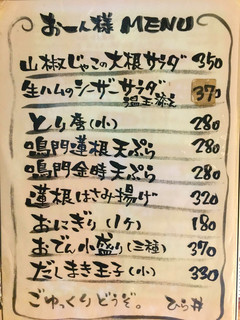 おーん様 MENU
山椒じゃこの大根サラダ 350
生ハムのシーザーサラダ 370
温玉添え
とり唐(小) 280
鳴門蓮根天ぷら 280
鳴門金時天ぷら 280
蓮根はさみ揚げ 320
おにぎり(1ケ) 180
おでん小盛り(三種) 370
だしまき玉子(小) 330
ごゆっくりどうぞ。 ひら井